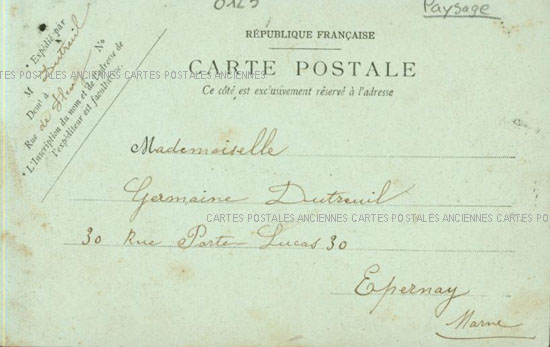 0123
Paysage
RÉPUBLIQUE FRANÇAISE
CARTE POSTALE
Ce côté est exclusivement réservé à l'adresse
• Expédié par
M Dutreuil
Demt à
Rue de No
• L'Inscription du nom et de l'adresse de
l'expéditeur est facultative.
CARTES POSTALES ANCIENNES CARTES POSTALES ANCIENNES CARTES POSTALES ANCIENNES CARTES POSTALES
Mademoiselle
Germaine Dutreuil
CARTES POSTALES ANCIENNES CARTES POSTALES ANCIENNES CARTES POSTALES
30 Rue Porte-Lucas 30
Epernay
Marne